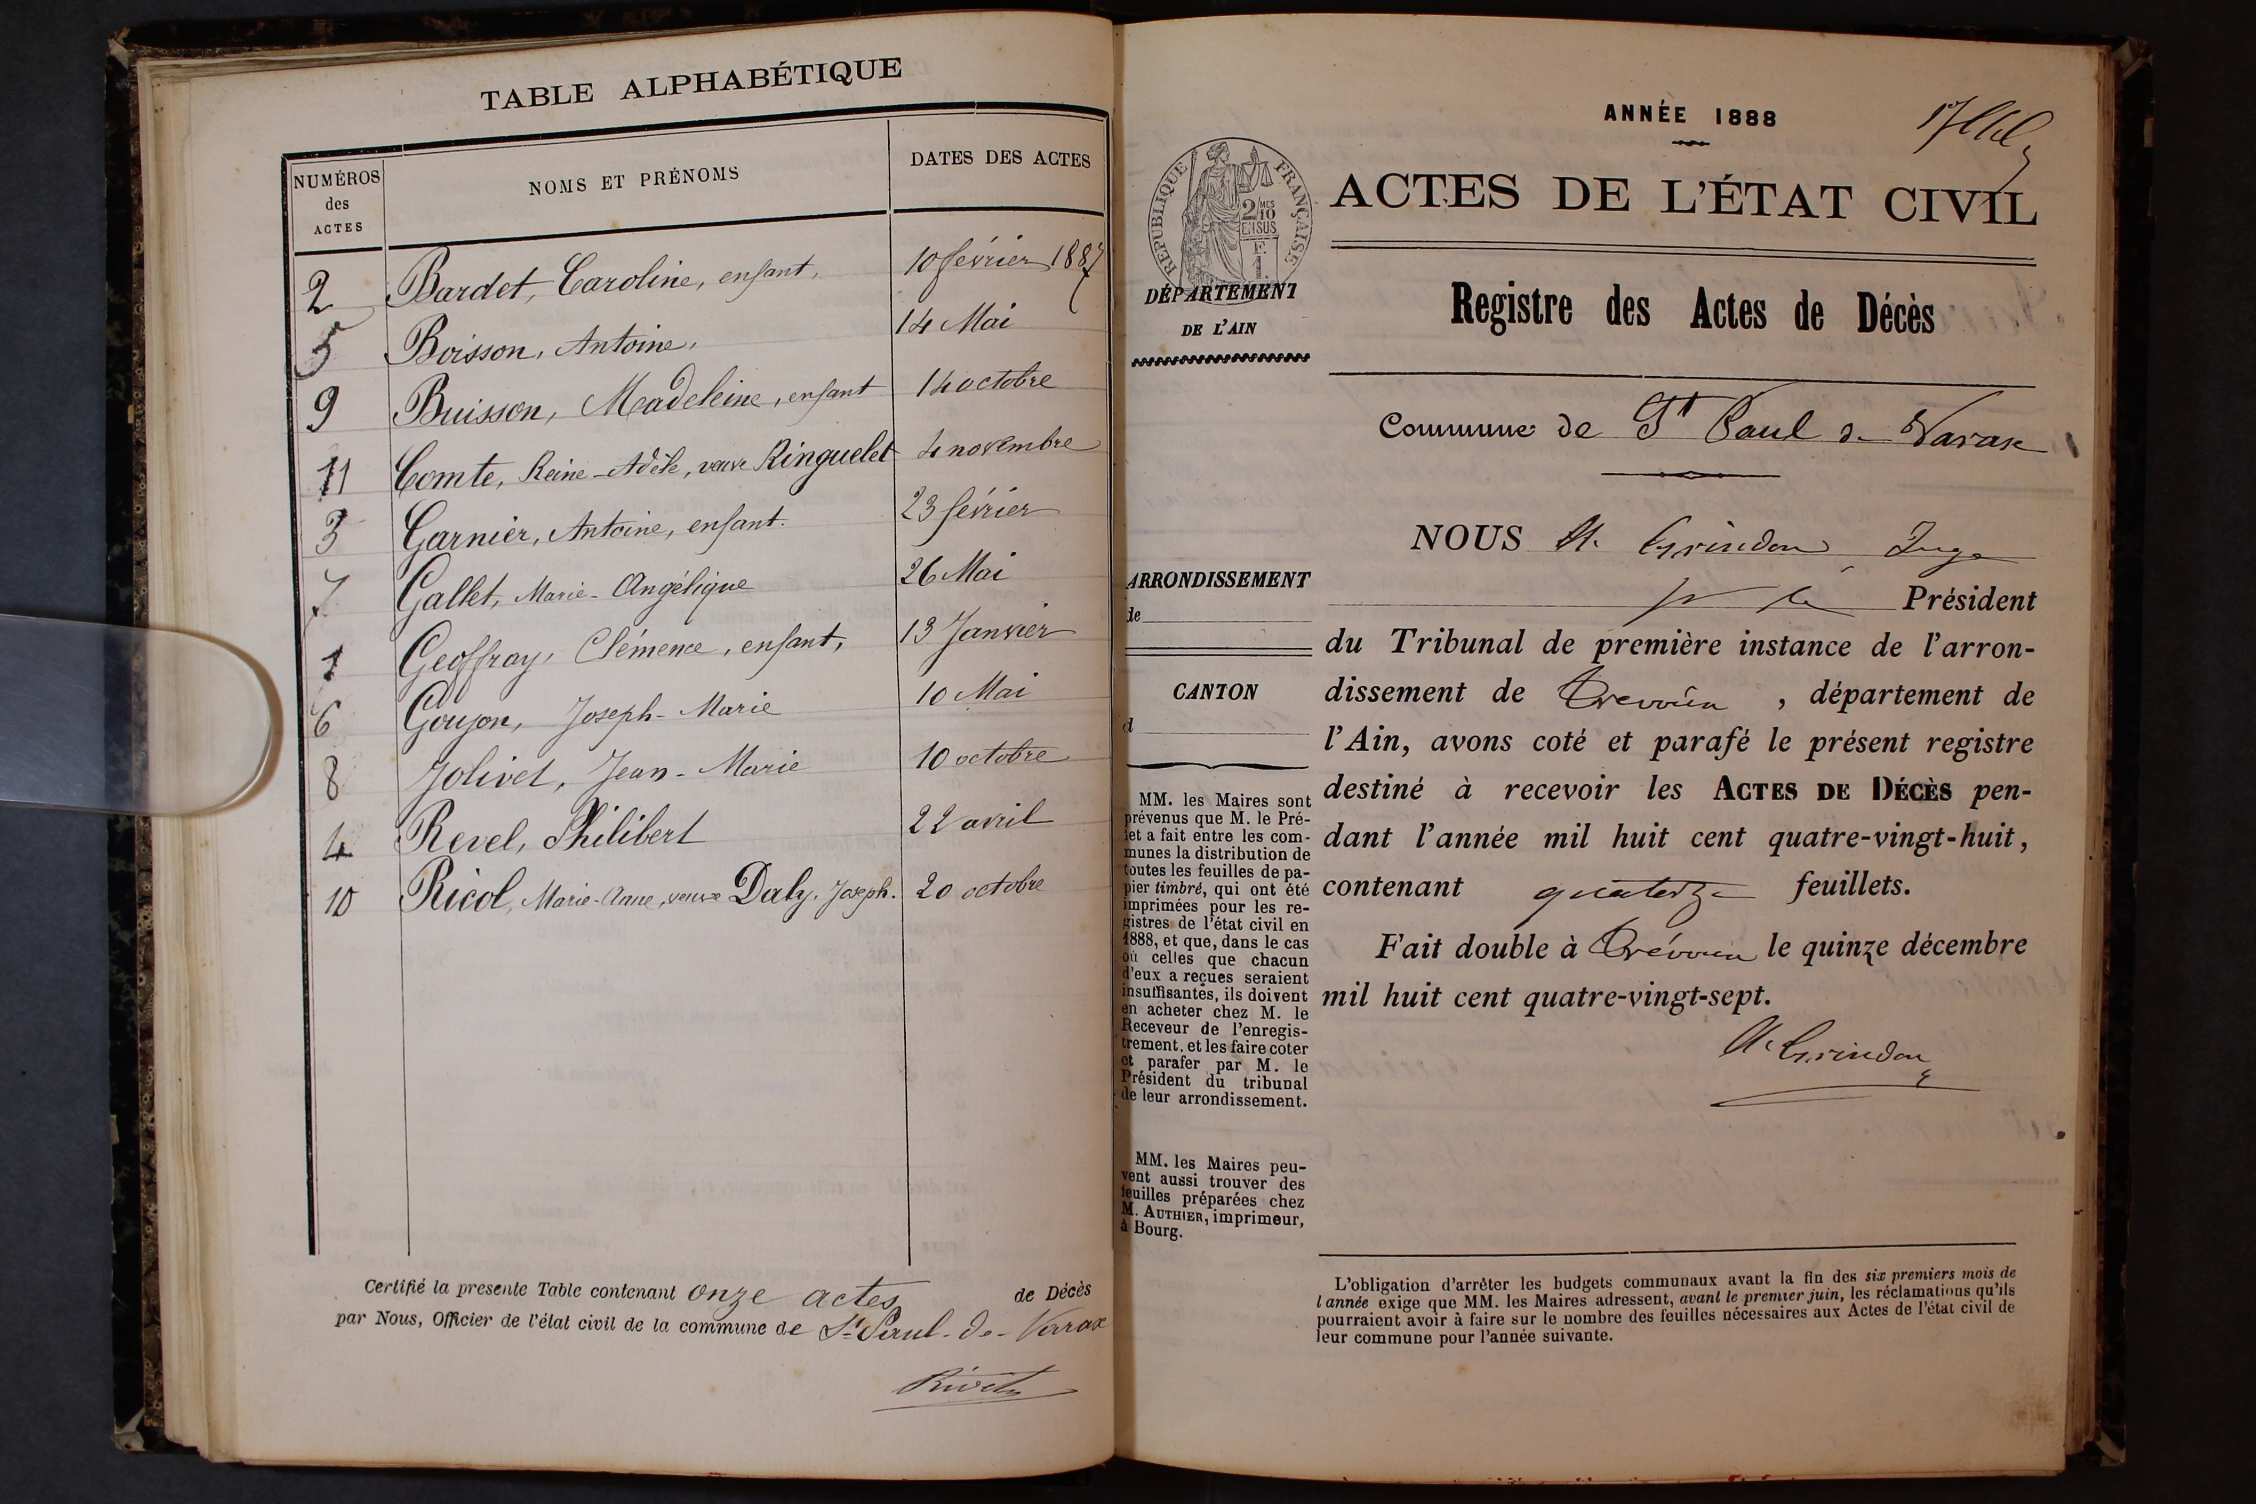 TABLE ALPHABÉTIQUE
NUMÉROS des ACTES
NOMS ET PRÉNOMS
DATES DES ACTES
2 Bardet, Caroline, enfant, 10 février 1887
5 Boisson, Antoine, 14 Mai
9 Buisson, Madeleine, enfant 14 octobre
11 Comte, Reine-Adèle, veuve Ringuelet 4 novembre
3 Garnier, Antoine, enfant. 23 février
7 Gallet, Marie-Angélique 26 Mai
1 Geoffray, Clémence, enfant, 13 Janvier
6 Goujon, Joseph-Marie 10 Mai
8 Jolivet, Jean-Marie 10 octobre
4 Revel, Philibert 22 avril
10 Ricol, Marie-Anne, veuve Daly, Joseph. 20 octobre
Certifié la presente Table contenant onze actes de Décès
par Nous, Officier de l'état civil de la commune de St Paul-de-Varax
ANNÉE 1888
RÉPUBLIQUE FRANÇAISE
2 MES
10
EN SUS
F.
1.
DÉPARTEMENT
DE L'AIN
ACTES DE L'ÉTAT CIVIL
Registre des Actes de Décès
Commune de St Paul de Varax
ARRONDISSEMENT
de
CANTON
d
MM. les Maires sont
prévenus que M. le Pré-
fet a fait entre les com-
munes la distribution de
toutes les feuilles de pa-
pier timbré, qui ont été
imprimées pour les re-
gistres de l'état civil en
1888, et que, dans le cas
où celles que chacun
d'eux a reçues seraient
insuffisantes, ils doivent
en acheter chez M. le
Receveur de l'enregis-
trement, et les faire coter
et parafer par M. le
Président du tribunal
de leur arrondissement.
MM. les Maires peu-
vent aussi trouver des
feuilles préparées chez
M. AUTHIER, imprimeur,
à Bourg.
NOUS A. Grindon Juge
Président
du Tribunal de première instance de l'arron-
dissement de Trevoux , département de
l'Ain, avons coté et parafé le présent registre
destiné à recevoir les ACTES DE DÉCÈS pen-
dant l'année mil huit cent quatre-vingt-huit,
contenant quatorze feuillets.
Fait double à Trévoux le quinze décembre
mil huit cent quatre-vingt-sept.
A. Grindon
L'obligation d'arrêter les budgets communaux avant la fin des six premiers mois de
l'année exige que MM. les Maires adressent, avant le premier juin, les réclamations qu'ils
pourraient avoir à faire sur le nombre des feuilles nécessaires aux Actes de l'état civil de
leur commune pour l'année suivante.